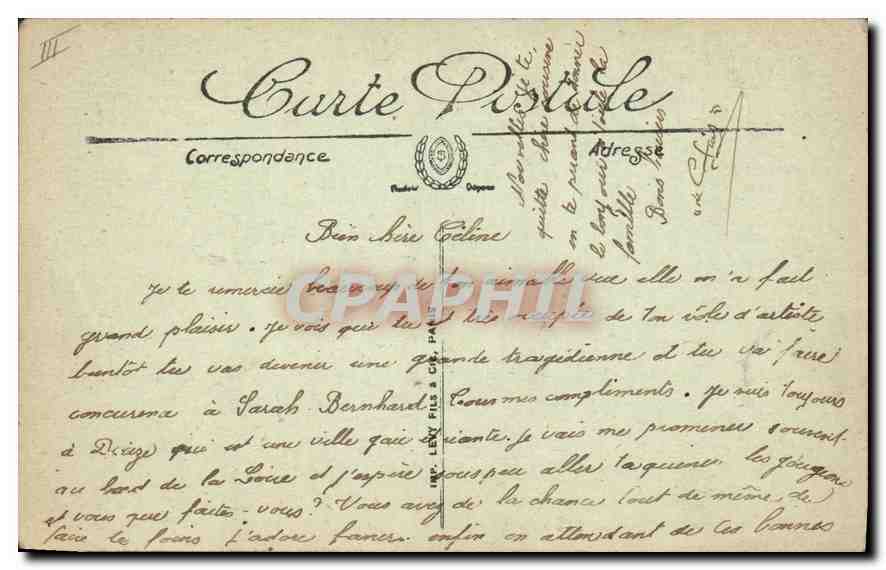 III
Carte Postale
Correspondance
Adresse
CPAPHIL
IMP. LEVY FILS & Cie, PARIS
Bien chère Céline
Je te remercie beaucoup de ton aimable vue elle m'a fait
grand plaisir. Je vois que tu es très occupée de ton rôle d'artiste
bientôt tu vas devenir une grande tragédienne et tu va faire
concurence à Sarah Bernhard Tous mes compliments. Je suis toujours
à qui est une ville gaie et riante. Je vais me promener souvent
au bord de la Loire et j'espère sous peu aller taquiner les gougeons
et vous que faites-vous? Vous avez de la chance tout de même de
faire le foins J'adore faner. enfin en attendant de tes bonnes
Nouvelles Je te
quitte chère cousine
en te priant de donner
le bonjour à toute la
famille
Bons Baisers